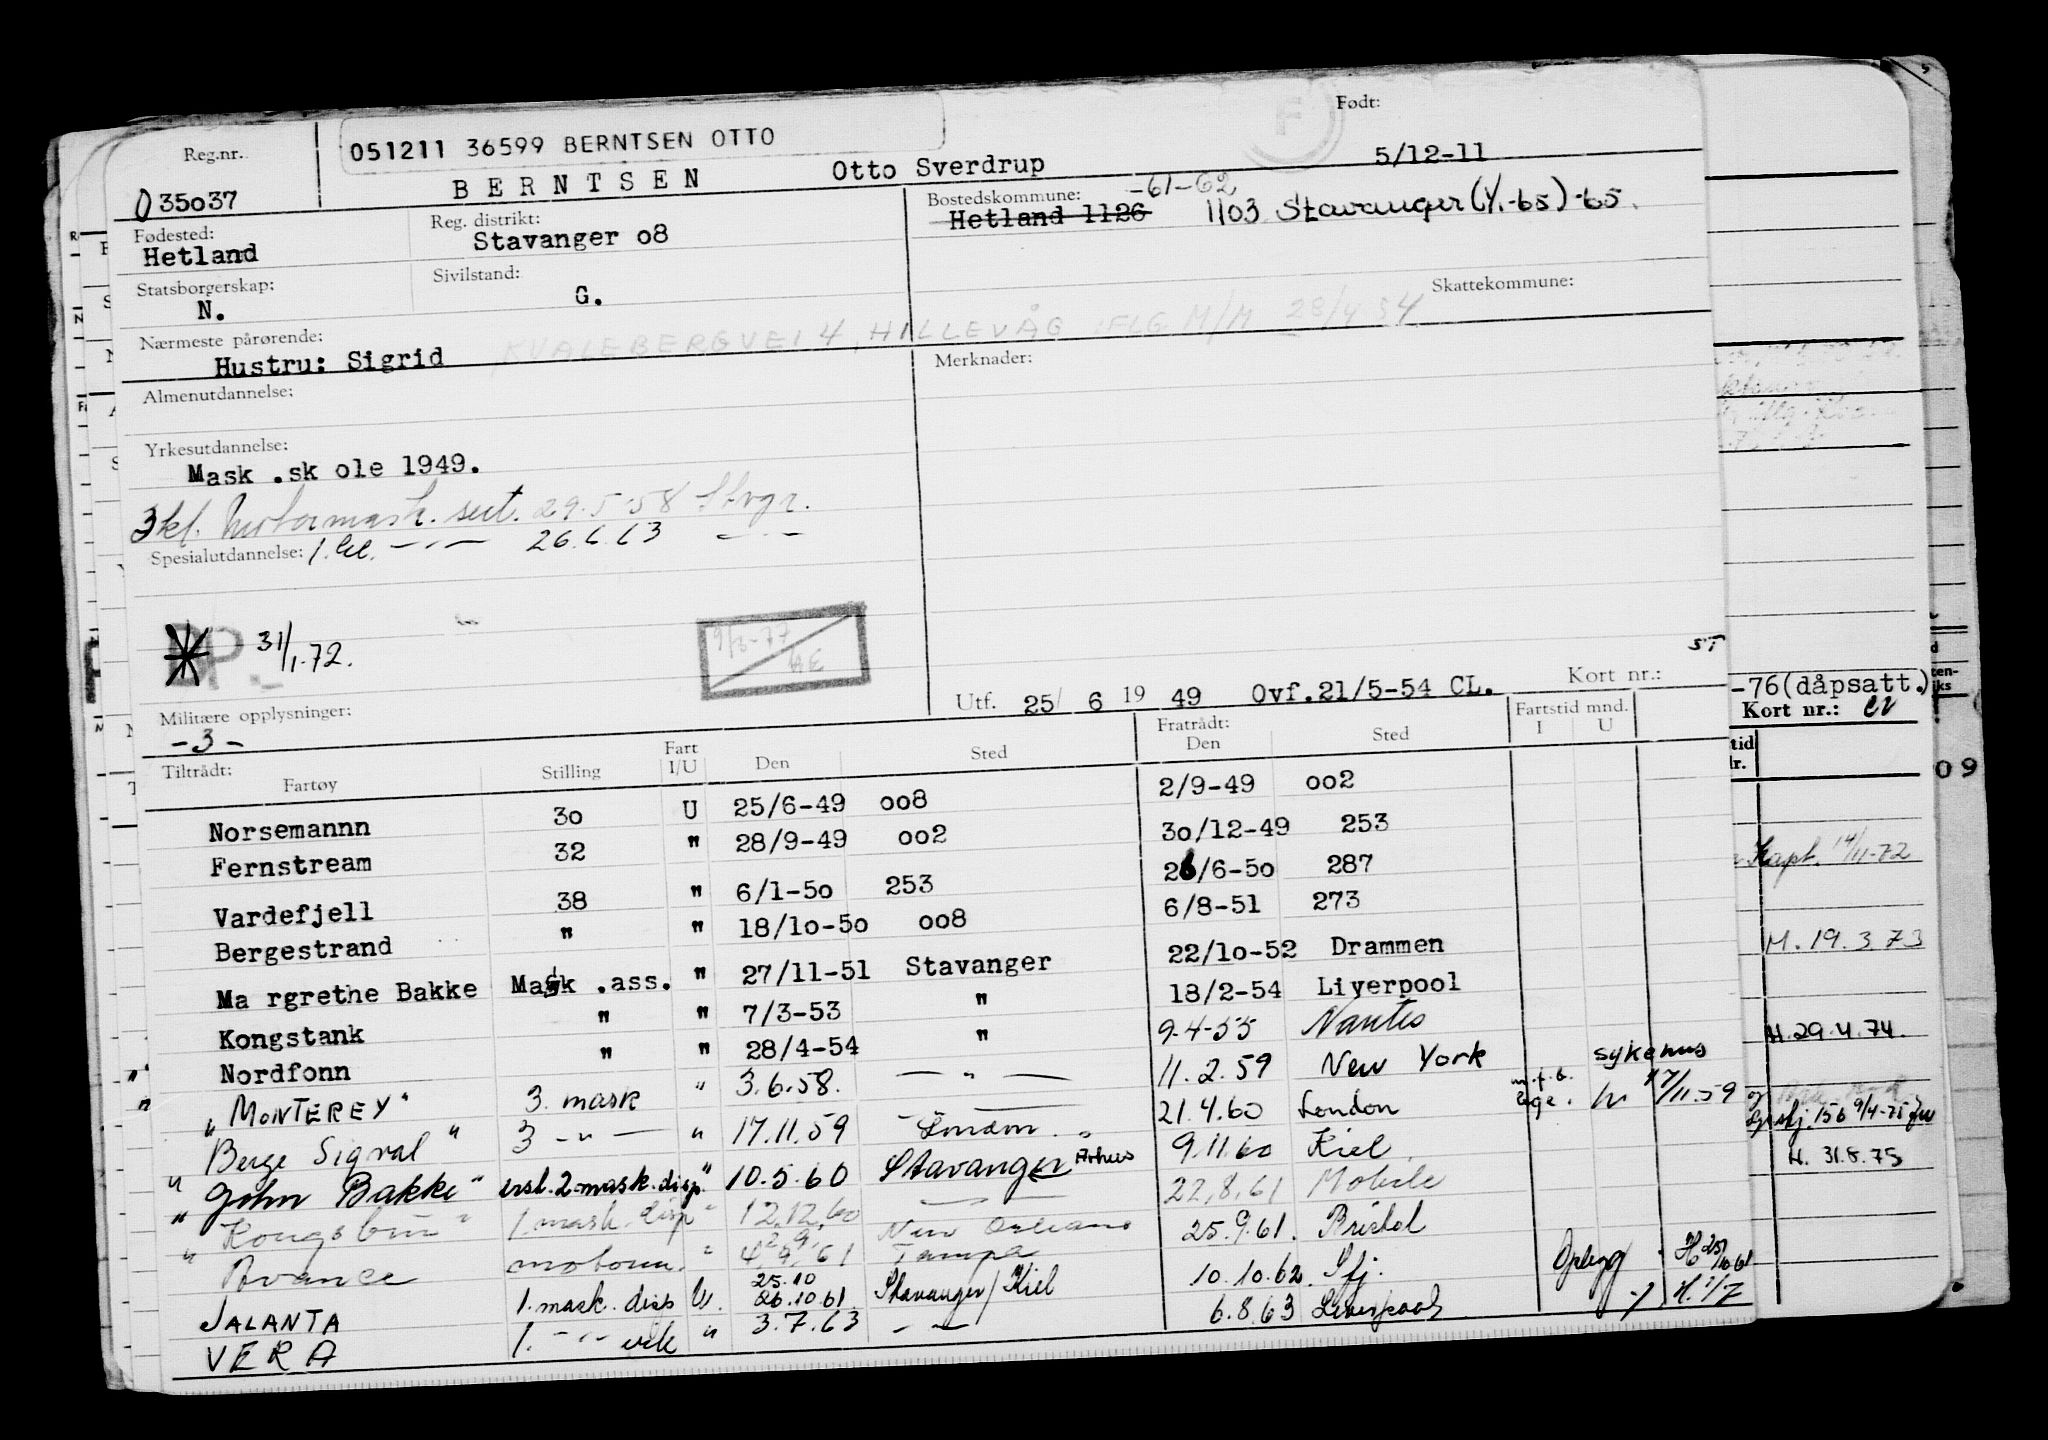 Født:
Reg.nr.
051211 36599 BERNTSEN OTTO
035o37
BERNTSEN Otto Sverdrup 5/12-11
Fødested:
Hetland
Reg. distrikt:
Stavanger o8
Bostedskommune: -61-62
Hetland 1126 1103 Stavanger (1/1-65) -65.
Statsborgerskap:
N.
Sivilstand:
G.
Skattekommune:
Nærmeste pårørende:
Hustru: Sigrid
KVALEBERGVEI 4, HILLEVÅG IFLG M/M 28/4 54
Merknader:
Almenutdannelse:
Yrkesutdannelse:
Mask .sk ole 1949.
3kl. Motormask. sert. 29.5.58 Stvgr.
Spesialutdannelse: 1. kl. -"- 26.6.63 -"-
31/1.72.
9/3-77
Utf. 25/ 6 19 49 Ovf.21/5-54 CL.
Kort nr.:
ST
Militære opplysninger:
-3-
Tiltrådt: Fartøy Stilling Fart I/U Den Sted Fratrådt: Den Sted Fartstid mnd. I U
Norsemannn 3o U 25/6-49 oo8 2/9-49 oo2
Fernstream 32 " 28/9-49 oo2 3o/12-49 253
Vardefjell 38 " 6/1-5o 253 26/6-5o 287
Bergestrand " " 18/1o-5o oo8 6/8-51 273
Ma rgrethe Bakke Mask .ass. " 27/11-51 Stavanger 22/1o-52 Drammen
Kongstank " " 7/3-53 " 18/2-54 Liverpool
Nordfonn " " 28/4-54 " 9-4-55 Nantes
" "MONTEREY" 3. mask " 3.6.58. — " — 11.2.59 New York sykehus
" Berge Sigval " 3 -"- " 17.11.59 21.4.60 London 17/11.59
" John Bakke " 2-mask.disp. " 10.5.60 Stavanger Århus 9.11.60 Kiel
" Kongsbru " 1. mask. disp " 12.12.60 22.8.61 Mobile
" Avance " 61 Tampa 25.9.61. Bristol
JALANTA 1. mask. disp U. 25.10 26.10.61. Stavanger/Kiel 10.10.62. Sfj. Opplegg H 25/10 61
VERA 1. -"- " 3.7.63 -"- 6.8.63 Liverpool H. 1/7
-76(dåpsatt.)
Kort nr.:
o9
Kapt. 14/11-72
M. 19.3.73
H.29.4.74.
H. 31.8.75